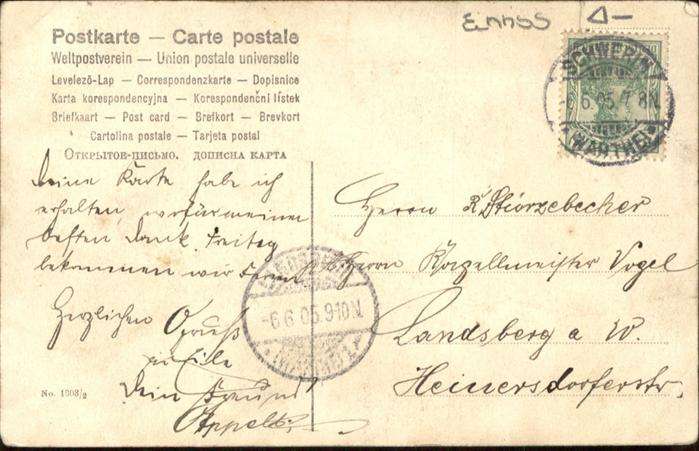 Postkarte — Carte postale
Weltpostverein — Union postale universelle
Levelező-Lap — Correspondenzkarte — Dopisnice
Karta korespondencyjna — Korespondenční lístek
Briefkaart — Post card — Brefkort — Brevkort
Cartolina postale — Tarjeta postal
Открытое-письмо. дописна карта
Deine Karte habe ich
erhalten, wofür meinen
besten Dank. Freitag
bekommen wir
Herzlichen Gruß
Dein Freund
Appelt.
No. 1308/2
SCHWERIN
6.6.05.7.8N.
(WARTHE)
-6.6.05.9-10N.
Herrn Stiorzebecher
Herrn Kapellmeister Vogel
Landsberg a W.
Heinersdorferstr.